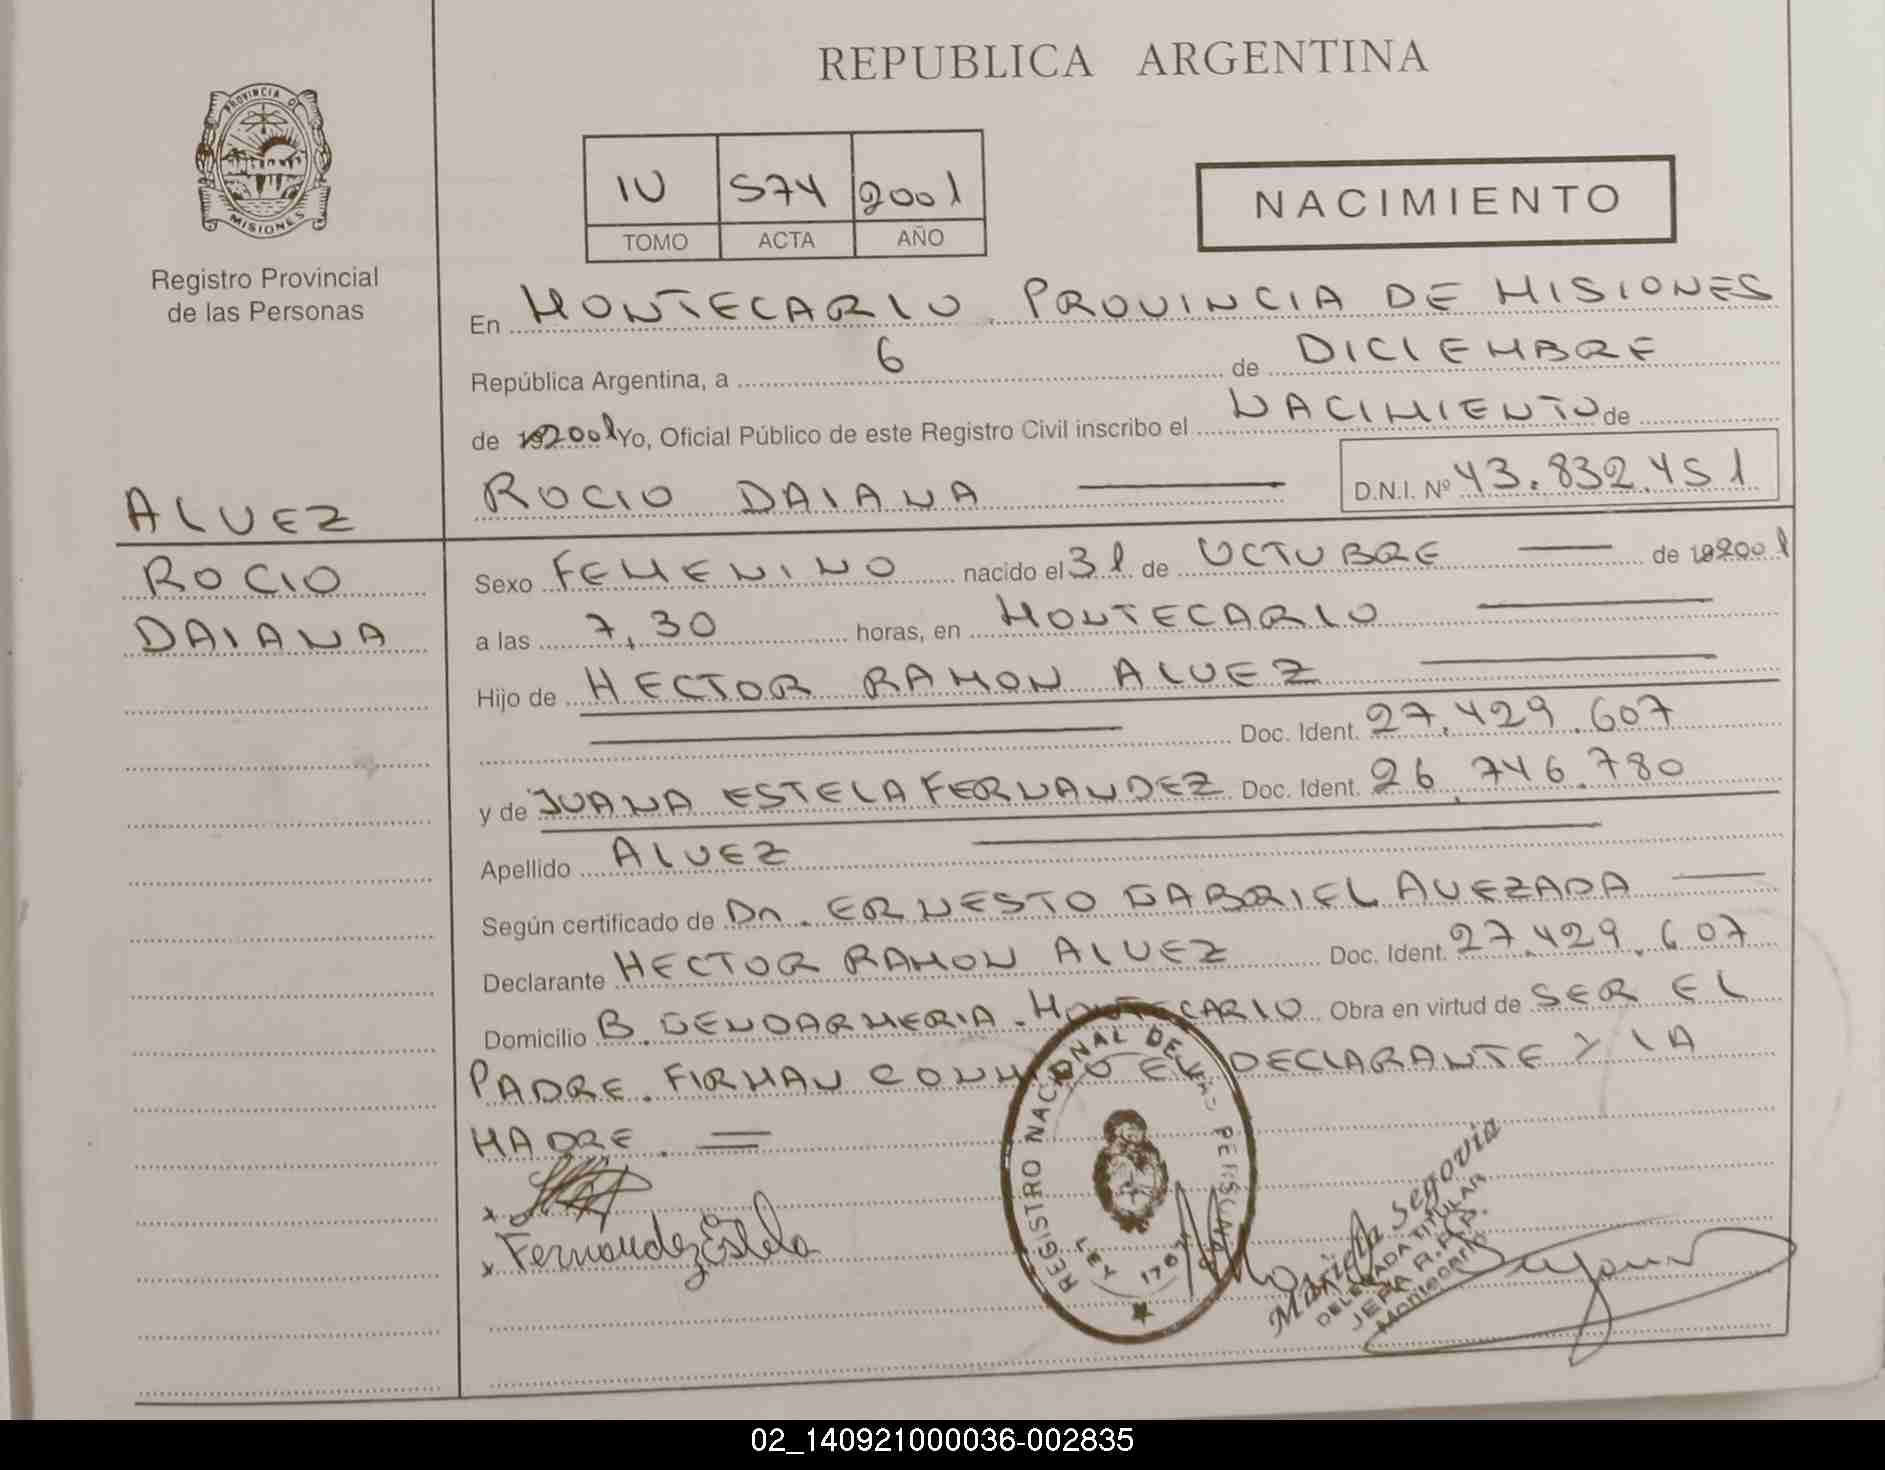 REPUBLICA ARGENTINA
PROVINCIA D
MISIONES
Registro Provincial
de las Personas
IV 574 2001
TOMO ACTA AÑO
NACIMIENTO
En MONTECARLO. PROVINCIA DE MISIONES
República Argentina, a 6 de DICIEMBRE
de 192001 Yo, Oficial Público de este Registro Civil inscribo el NACIMIENTO de
ROCIO DAIANA D.N.I. Nº 43.832.451
ALVEZ
ROCIO
DAIANA
Sexo FEMENINO nacido el 31 de OCTUBRE de 192001
a las 7,30 horas, en MONTECARLO
Hijo de HECTOR RAMON ALVEZ
Doc. Ident. 27.429.607
y de JUANA ESTELA FERNANDEZ Doc. Ident. 26.746.780
Apellido ALVEZ
Según certificado de Dr. ERNESTO GABRIEL AVEZADA
Declarante HECTOR RAMON ALVEZ Doc. Ident. 27.429.607
Domicilio B. GENDARMERIA. MONTECARLO Obra en virtud de SER EL
PADRE. FIRMAN CONMIGO EL DECLARANTE Y LA
MADRE. =
x
x Fernandez Estela
REGISTRO NACIONAL DE LAS PERSONAS
LEY
Mariela Segovia
DELEGADA TITULAR
Montecarlo
02_140921000036-002835